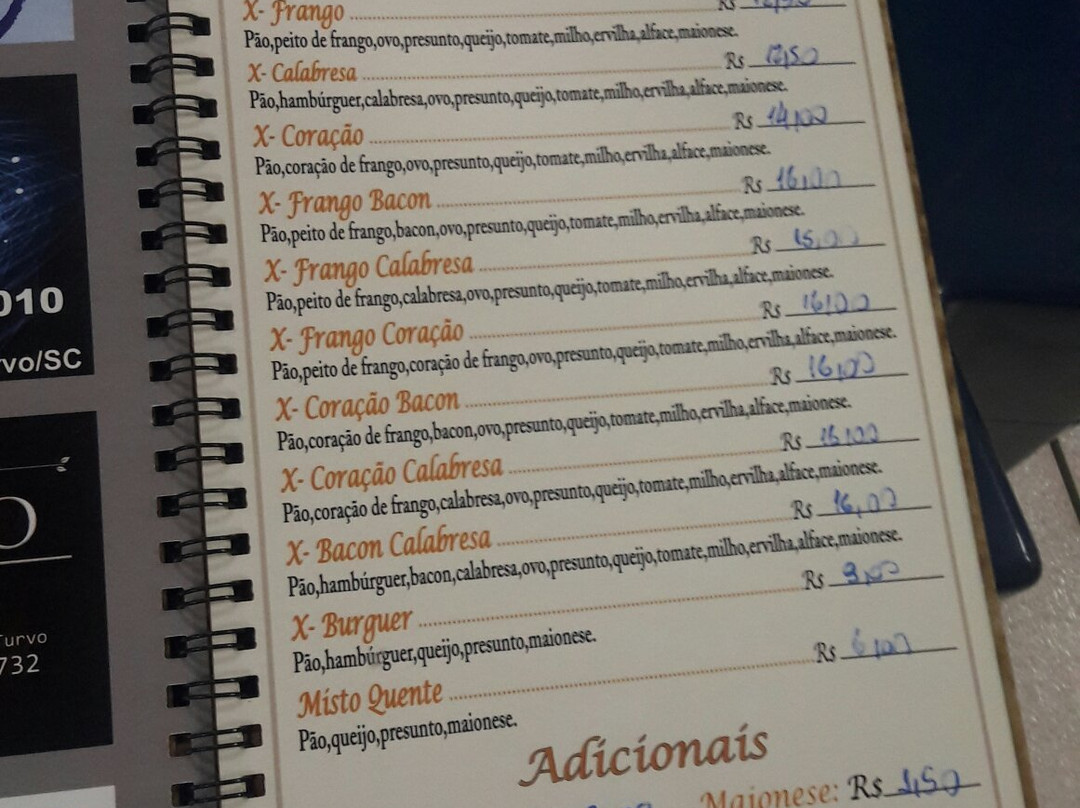 X- Frango Rs
Pão,peito de frango,ovo,presunto,queijo,tomate,milho,ervilha,alface,maionese.
X- Calabresa Rs
Pão,hambúrguer,calabresa,ovo,presunto,queijo,tomate,milho,ervilha,alface,maionese.
X- Coração Rs 14,00
Pão,coração de frango,ovo,presunto,queijo,tomate,milho,ervilha,alface,maionese.
X- Frango Bacon Rs 16,00
Pão,peito de frango,bacon,ovo,presunto,queijo,tomate,milho,ervilha,alface,maionese.
X- Frango Calabresa Rs 15,00
Pão,peito de frango,calabresa,ovo,presunto,queijo,tomate,milho,ervilha,alface,maionese.
X- Frango Coração Rs 16,00
Pão,peito de frango,coração de frango,ovo,presunto,queijo,tomate,milho,ervilha,alface,maionese.
X- Coração Bacon Rs 16,00
Pão,coração de frango,bacon,ovo,presunto,queijo,tomate,milho,ervilha,alface,maionese.
X- Coração Calabresa Rs 16,00
Pão,coração de frango,calabresa,ovo,presunto,queijo,tomate,milho,ervilha,alface,maionese.
X- Bacon Calabresa Rs 16,00
Pão,hambúrguer,bacon,calabresa,ovo,presunto,queijo,tomate,milho,ervilha,alface,maionese.
X- Burguer Rs
Pão,hambúrguer,queijo,presunto,maionese.
Misto Quente Rs 6,00
Pão,queijo,presunto,maionese.
Adicionais
Maionese: Rs 1,50
010
vo/SC
O
Turvo
732